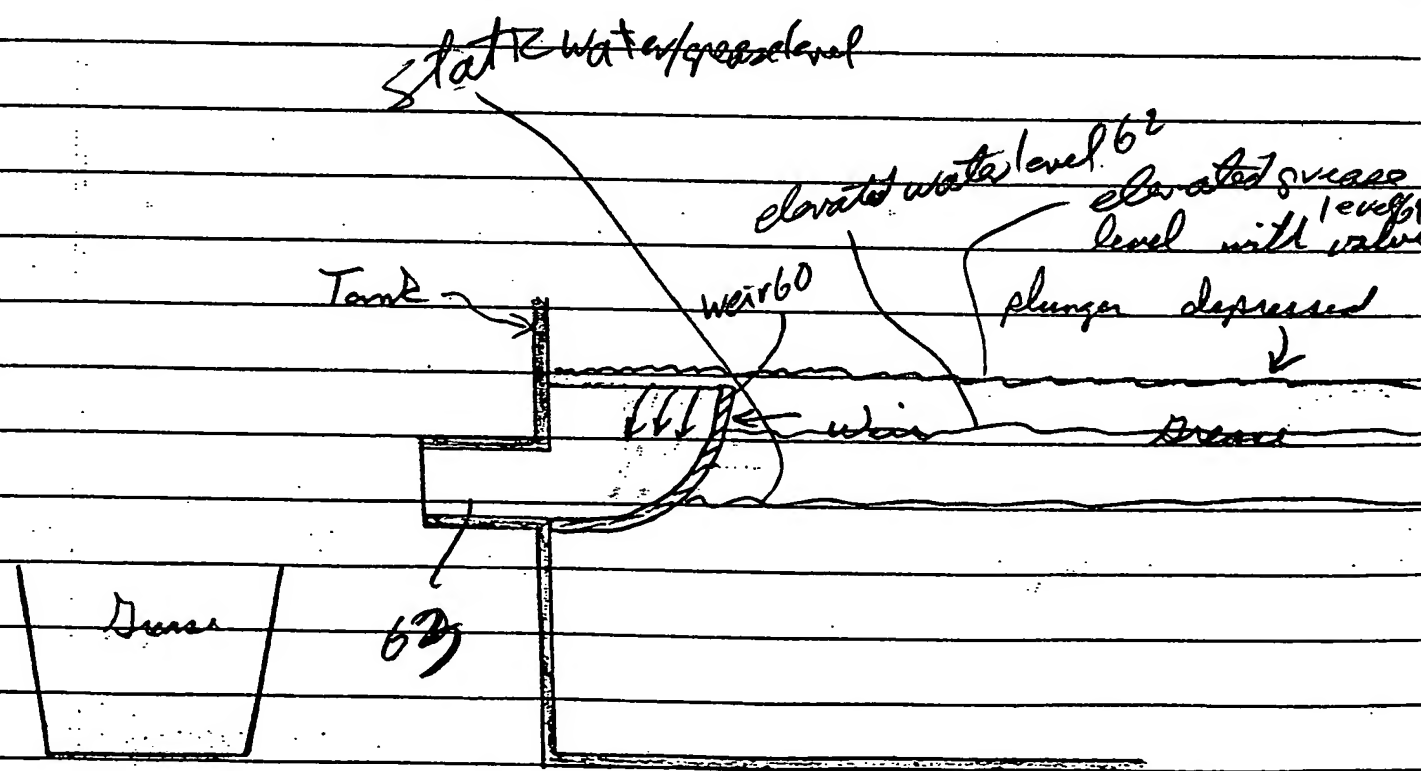 Static water/grease level
elevated water level 62
elevated grease
level with valve
plunger depressed
Tank
weir 60
Weir
Grease
Grease